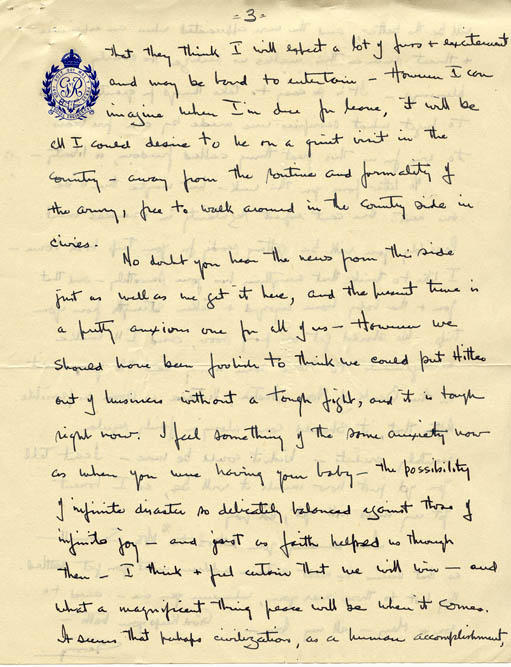 - 3 -
that they think I will expect a lot of fuss + excitement
and may be bored to entertain - However I can
imagine when I'm due for leave, it will be
all I could desire to be on a quiet visit in the
country - away from the routine and formality of
the army, free to walk around in the country side in
civies.
No doubt you hear the news from this side
just as well as we get it here, and the present time is
a pretty anxious one for all of us - However we
should have been foolish to think we could put Hitler
out of business without a tough fight, and it is tough
right now. I feel something of the same anxiety now
as when you were having your baby - the possibility
of infinite disaster so delicately balanced against those of
infinite joy - and just as faith helped us through
then - I think + feel certain that we will win - and
what a magnificent thing peace will be when it comes.
It seems that perhaps civilization, as a human accomplishment,